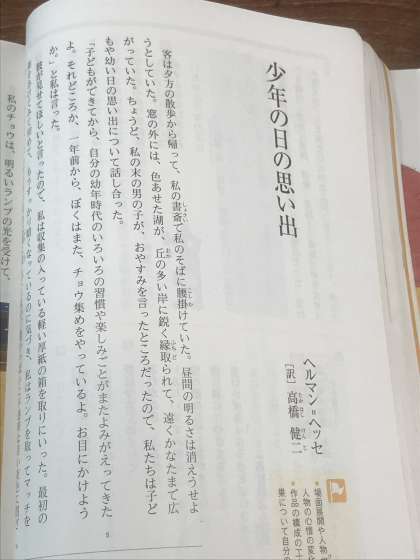 少年の日の思い出
ヘルマン=ヘッセ
[訳]高橋健二
場面展開や人物
人物の心情の変化
作品の構成の工
果について自分の
客は夕方の散歩から帰って、私の書斎で私のそばに腰掛けていた。昼間の明るさは消えうせよ
うとしていた。窓の外には、色あせた湖が、丘の多い岸に鋭く縁取られて、遠くかなたまで広
がっていた。ちょうど、私の末の男の子が、おやすみを言ったところだったので、私たちは子ど
もや幼い日の思い出について話し合った。
「子どもができてから、自分の幼年時代のいろいろの習慣や楽しみごとがまたよみがえってきた
よ。それどころか、一年前から、ぼくはまた、チョウ集めをやっているよ。お目にかけよう
か。」と私は言った。
彼が見せてほしいと言ったので、私は収集の入っている軽い厚紙の箱を取りにいった。最初の
もうすっかり暗くなっているのに気づき、私はランプを取ってマッチを
私のチョウは、明るいランプの光を受けて、
5